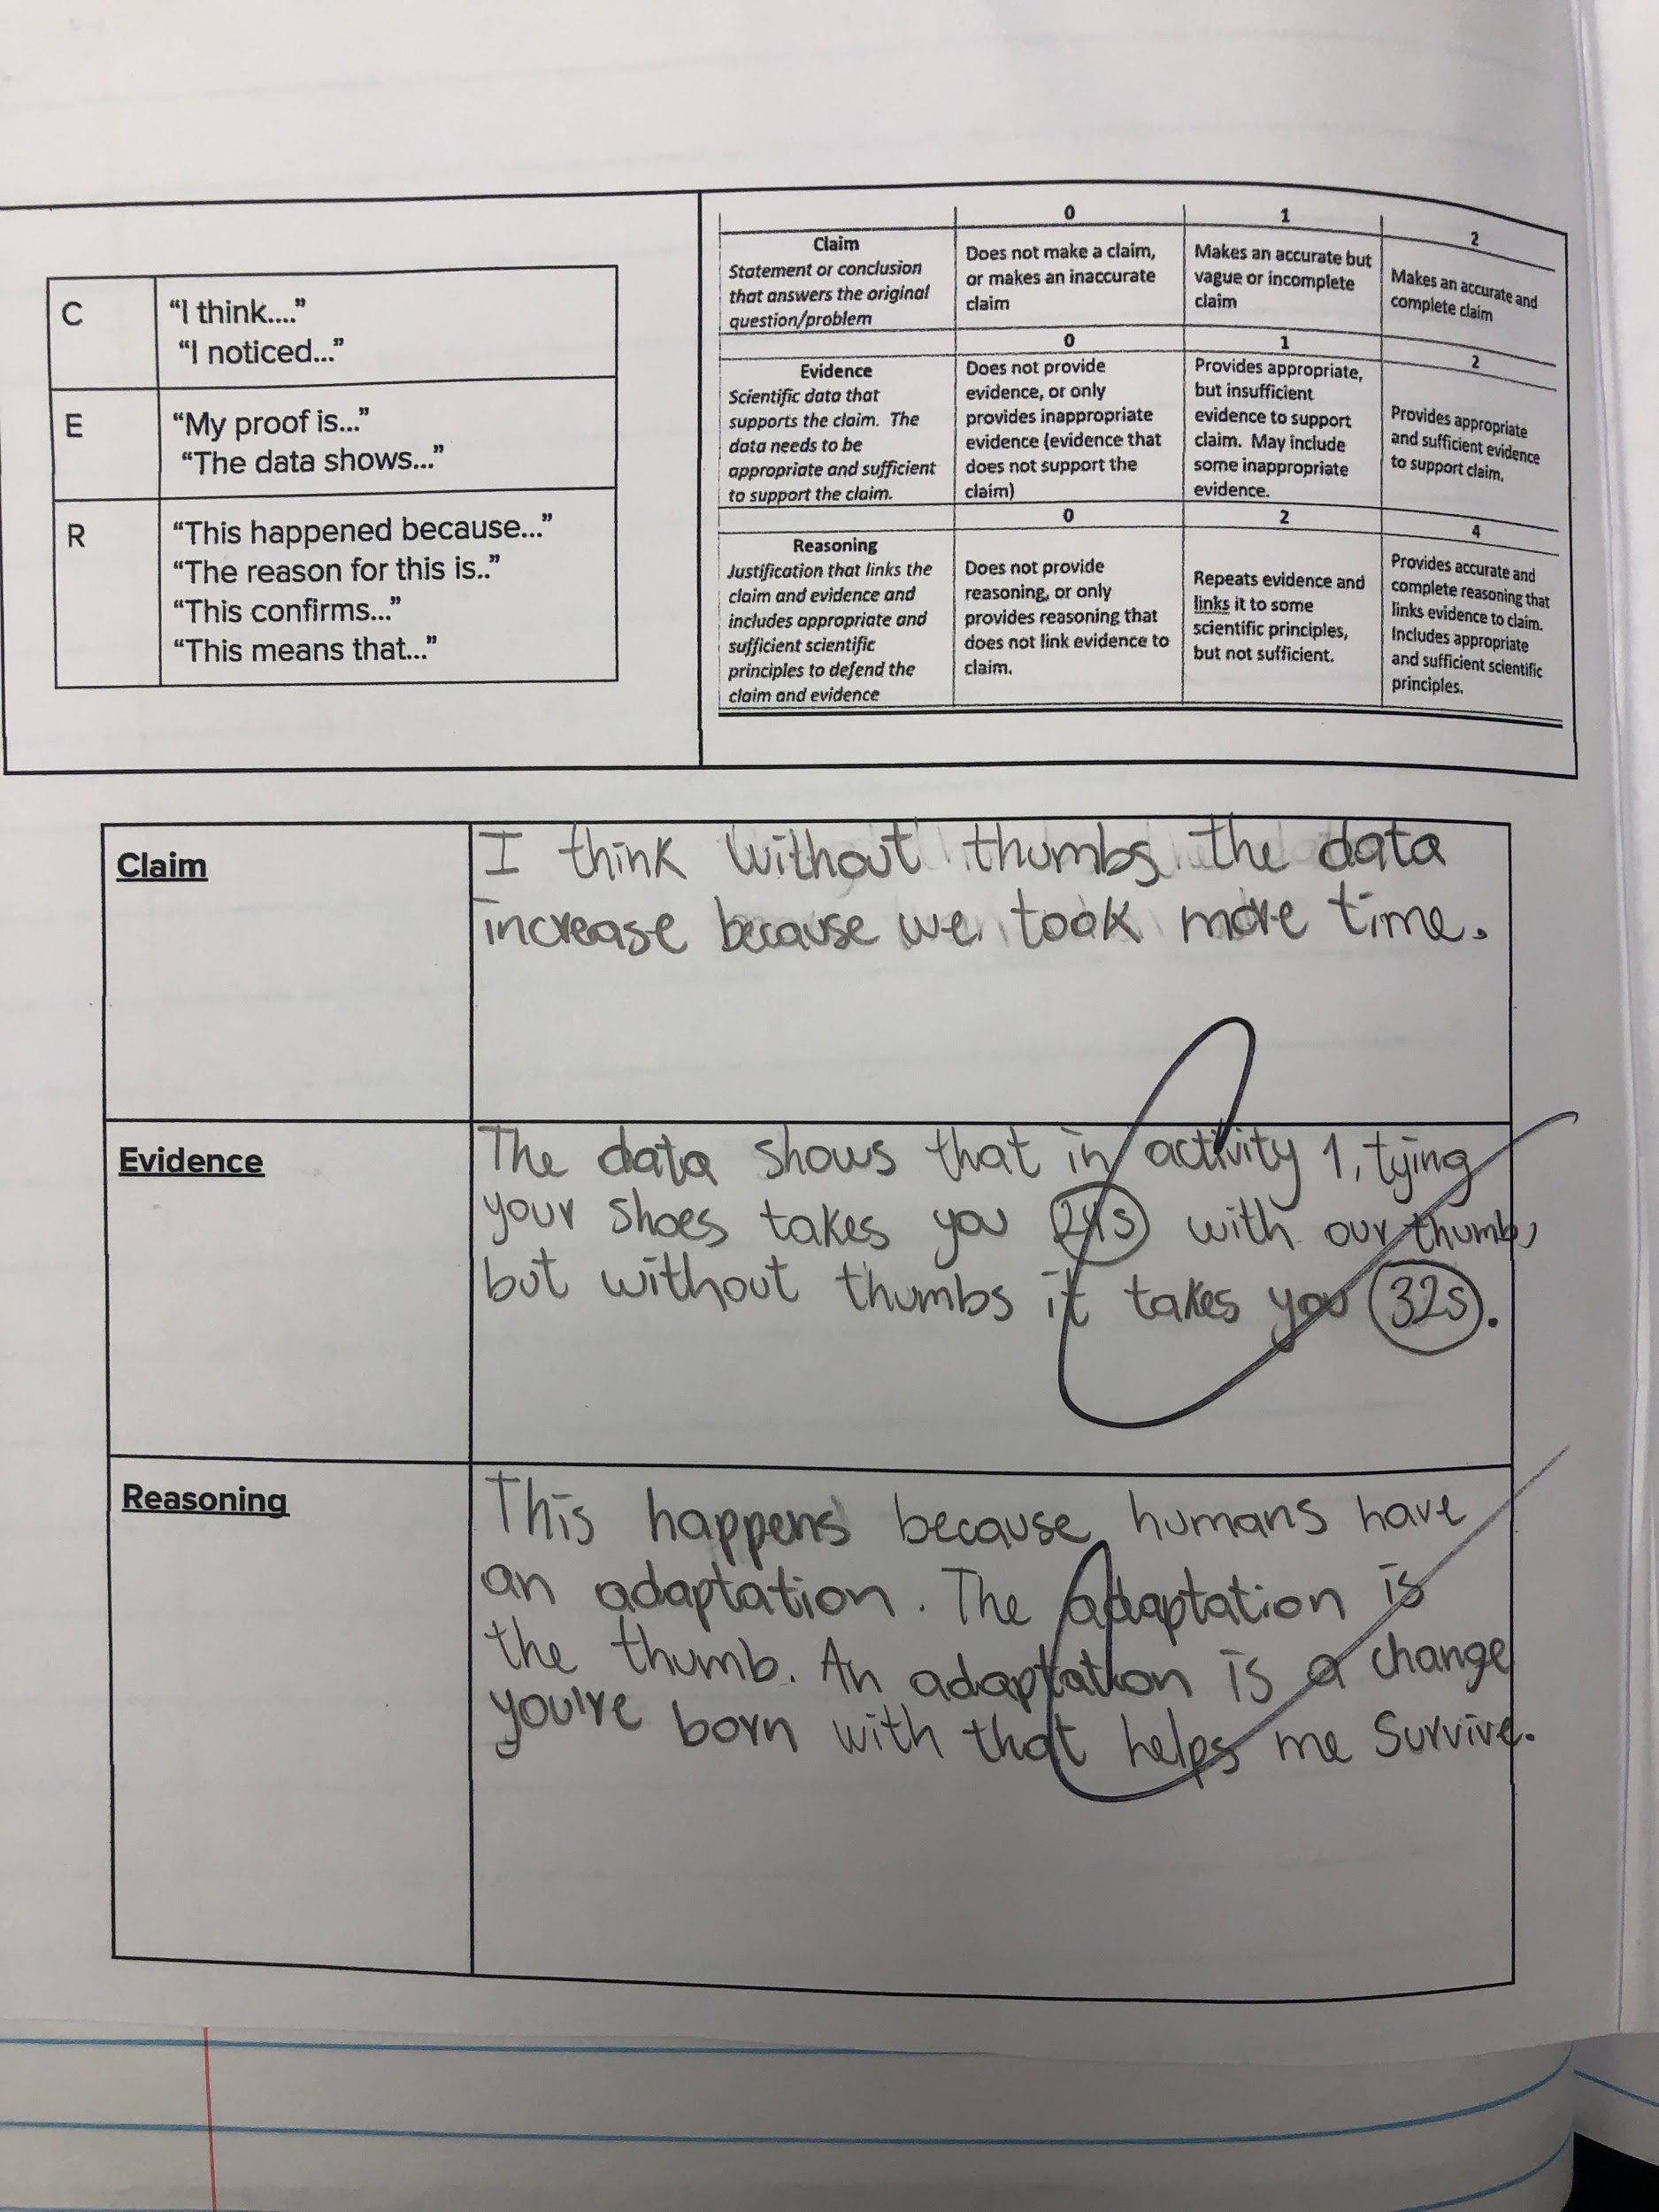 C
“I think....”
“I noticed...”
E
“My proof is...”
“The data shows...”
R
“This happened because...”
“The reason for this is..”
“This confirms...”
“This means that...”
0
1
2
Claim
Statement or conclusion
that answers the original
question/problem
Does not make a claim,
or makes an inaccurate
claim
Makes an accurate but
vague or incomplete
claim
Makes an accurate and
complete claim
0
1
2
Evidence
Scientific data that
supports the claim. The
data needs to be
appropriate and sufficient
to support the claim.
Does not provide
evidence, or only
provides inappropriate
evidence (evidence that
does not support the
claim)
Provides appropriate,
but insufficient
evidence to support
claim. May include
some inappropriate
evidence.
Provides appropriate
and sufficient evidence
to support claim.
0
2
4
Reasoning
Justification that links the
claim and evidence and
includes appropriate and
sufficient scientific
principles to defend the
claim and evidence
Does not provide
reasoning, or only
provides reasoning that
does not link evidence to
claim.
Repeats evidence and
links it to some
scientific principles,
but not sufficient.
Provides accurate and
complete reasoning that
links evidence to claim.
Includes appropriate
and sufficient scientific
principles.
Claim
I think without thumbs the data
increase because we took more time.
Evidence
The data shows that in activity 1, tying
your shoes takes you with our thumb,
but without thumbs it takes you 32s.
Reasoning
This happens because humans have
an adaptation. The adaptation is
the thumb. An adaptation is a change
you're born with that helps me survive.